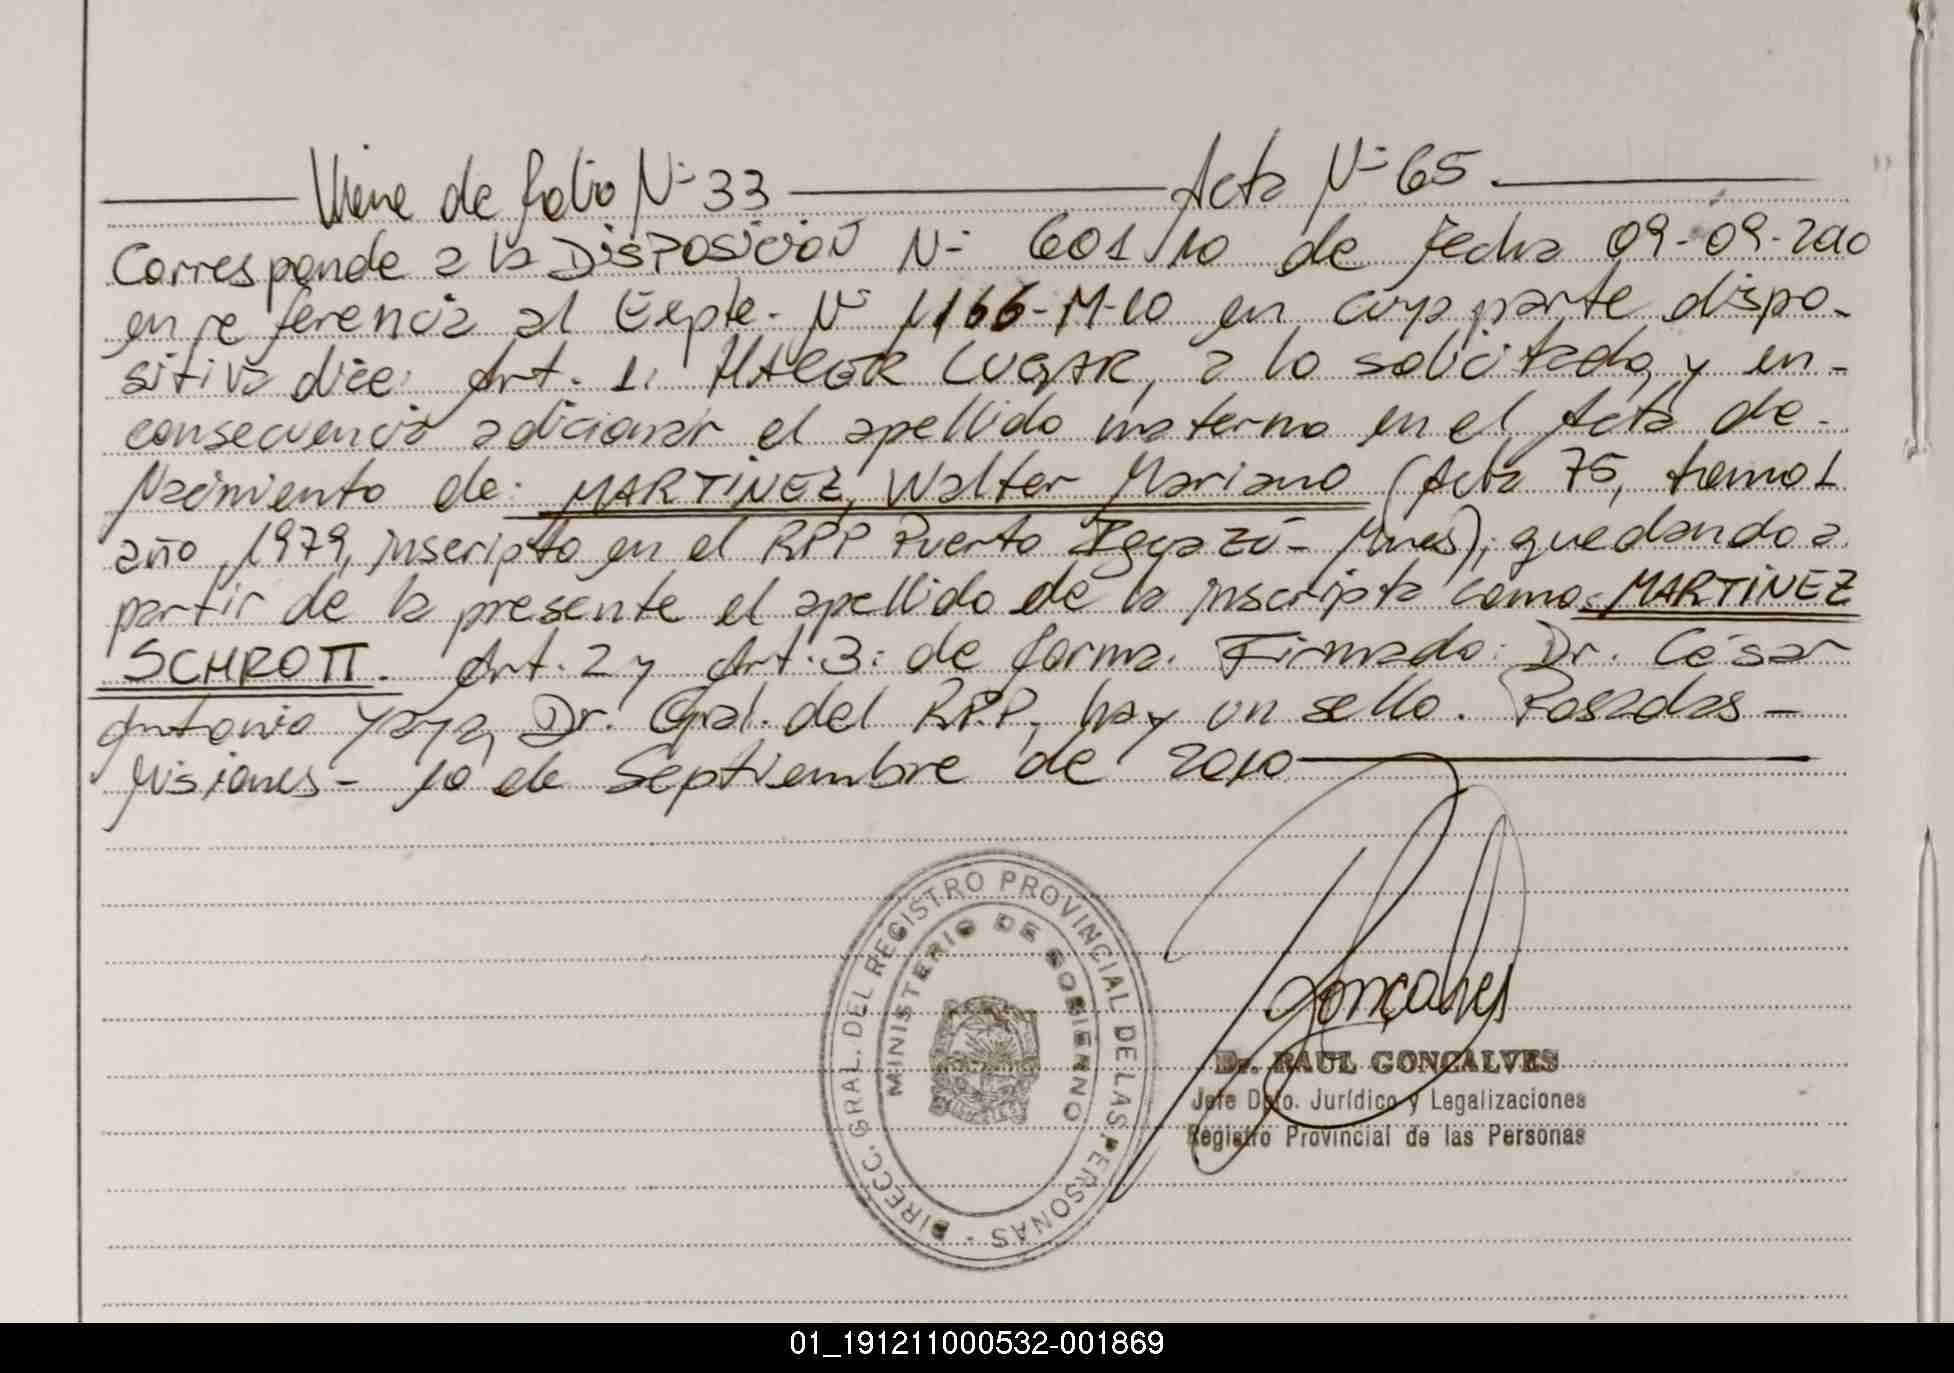 Viene de folio Nº 33 Acta Nº 65.
Corresponde a la DISPOSICION Nº 601/10 de fecha 09-09-2010
en referencia al Expte. Nº 1166-M-10 en cuya parte dispo-
sitiva dice: Art. 1: HACER LUGAR, a lo solicitado, y en-
consecuencia adicionar el apellido materno en el Acta de-
Nacimiento de: MARTINEZ, Walter Mariano (Acta 75, tomo 1
año 1979, inscripto en el RPP Puerto Iguazú - Mnes); quedando a
partir de la presente el apellido de la inscripta como: MARTINEZ
SCHROTT. Art. 2 y Art. 3: de forma. Firmado: Dr. César
Antonio Yaya, Dr. Gral. del R.P.P, hay un sello. Posadas -
Misiones - 10 de Septiembre de 2010
DIRECC. GRAL. DEL REGISTRO PROVINCIAL DE LAS PERSONAS
MINISTERIO DE GOBIERNO
Goncalves
Dr. RAUL GONCALVES
Jefe Dpto. Jurídico y Legalizaciones
Registro Provincial de las Personas
01_191211000532-001869